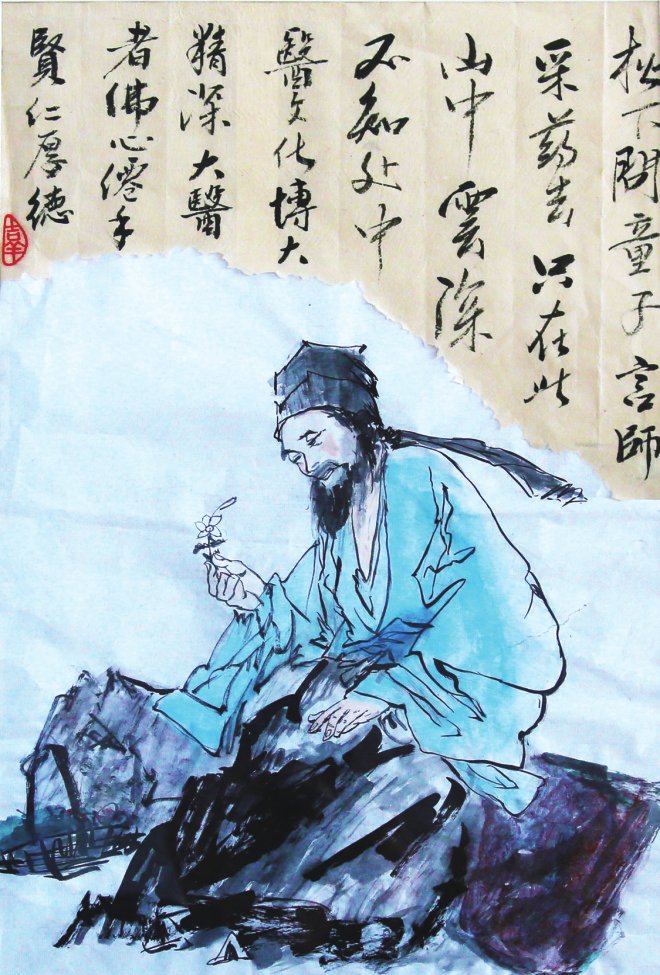 松下問童子言師
采药去只在此
山中雲深
不知处中
醫文化博大
精深大醫
者佛心僊手
賢仁厚德